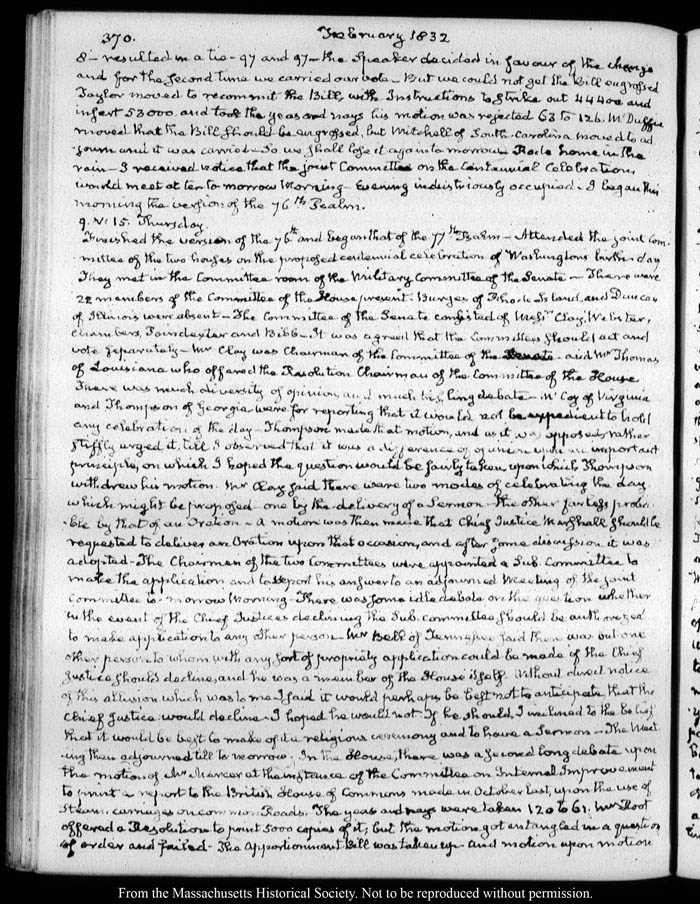 370. February 1832
8 - resulted in a tie - 97 and 97 - the Speaker decided in favour of the change
and for the second time we carried our vote - But we could not get the Bill engrossed
Taylor moved to recommit the Bill, with Instructions to strike out 44400 and
insert 53000 and took the yeas and nays his motion was rejected 63 to 126. McDuffie
moved that the Bill should be engrossed, but Mitchell of South-Carolina moved to ad-
journ and it was carried - So we shall lose it again to morrow - Rode home in the
rain - I received notice that the joint Committee on the Centennial Celebration,
would meet at ten to morrow Morning - Evening industriously occupied - I began this
morning the version of the 76th Psalm.
9. V: 15. Thursday.
Finished the version of the 76th and began that of the 77th Psalm - Attended the joint Com-
mittee of the two houses on the proposed centennial celebration of Washington's birth-day
They met in the Committee room of the Military Committee of the Senate - There were
22 members of the Committee of the House present. Burges of Rhode Island, and Duncan
of Illinois were absent - The Committee of the Senate consisted of Messrs Clay, Webster,
Chambers, Poindexter and Bibb - It was agreed that the Committees should act and
vote separately - Mr Clay was Chairman of the Committee of the Senate - and Mr Thomas
of Louisiana who offered the Resolution Chairman of the Committee of the House
There was much diversity of opinion, and much debate - McCoy of Virginia
and Thompson of Georgia were for reporting that it would not be expedient to hold
any celebration of the day - Thompson made that motion, and as it was opposed, rather
stiffly urged it, till I observed that it was a difference of opinion upon an important
principle, on which I hoped the question would be fairly taken, upon which Thompson
withdrew his motion. Mr Clay said there were two modes of celebrating the day
which might be proposed - one by the delivery of a Sermon - the other perhaps prefer-
ble by that of an Oration - A motion was then made that Chief Justice Marshall should be
requested to deliver an Oration upon that occasion, and after some discussion it was
adopted - The Chairmen of the two Committees were appointed a Sub-Committee to
make the application and to report his answer to an adjourned Meeting of the joint
Committee to-morrow Morning - There was some idle debate on the question whether
in the event of the Chief Justice's declining the Sub-committee should be authorized
to make application to any other person - Mr Bell of Tennessee said there was but one
other person to whom with any sort of propriety application could be made if the Chief
Justice should decline, and he was a member of the House itself. Without direct notice
of this allusion which was to me I said it would perhaps be best not to anticipate that the
Chief Justice would decline - I hoped he would not - If he should, I inclined to the belief
that it would be best to make of it a religious ceremony and to have a Sermon - The Meet-
ing then adjourned till to morrow. In the House, there was a second long debate upon
the motion of Mr Mercer at the instance of the Committee on Internal Improvement
to print a report to the British House of Commons made in October last, upon the use of
Steam carriages on common Roads. The yeas and nays were taken 120 to 61. Mr Root
offered a Resolution to print 5000 copies of it; but the motion got entangled in a question
of order and failed - The Apportionment Bill was taken up and motion upon motion
From the Massachusetts Historical Society. Not to be reproduced without permission.